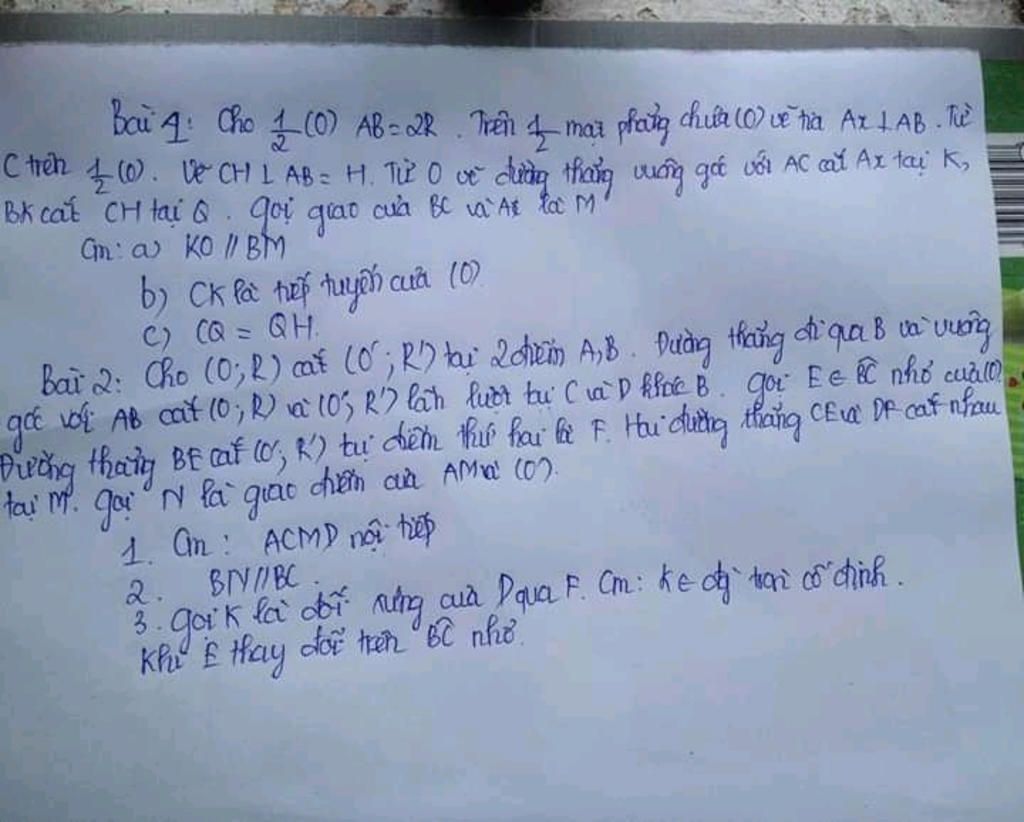 Bài 1: Cho 1/2 (O) AB = 2R. Trên 1/2 mặt phẳng chứa (O) vẽ tia Ax ⊥ AB. Từ
C trên 1/2 (O). Vẽ CH ⊥ AB = H. Từ O vẽ đường thẳng vuông góc với AC cắt Ax tại K,
BK cắt CH tại Q. Gọi giao của BC và Ax là M
Cm: a) KO // BM
b) CK là tiếp tuyến của (O)
c) CQ = QH.
Bài 2: Cho (O; R) cắt (O'; R') tại 2 điểm A, B. Đường thẳng đi qua B và vuông
góc với AB cắt (O; R) và (O'; R') lần lượt tại C và D khác B. Gọi E ∈ BC nhỏ của (O)
Đường thẳng BE cắt (O'; R') tại điểm thứ hai là F. Hai đường thẳng CE và DF cắt nhau
tại M. Gọi N là giao điểm của AM và (O').
1. Cm: ACMD nội tiếp
2. BN // BC.
3. Gọi K là đối xứng của D qua F. Cm: K ∈ đg tròn cố định.
Khi E thay đổi trên BC nhỏ.